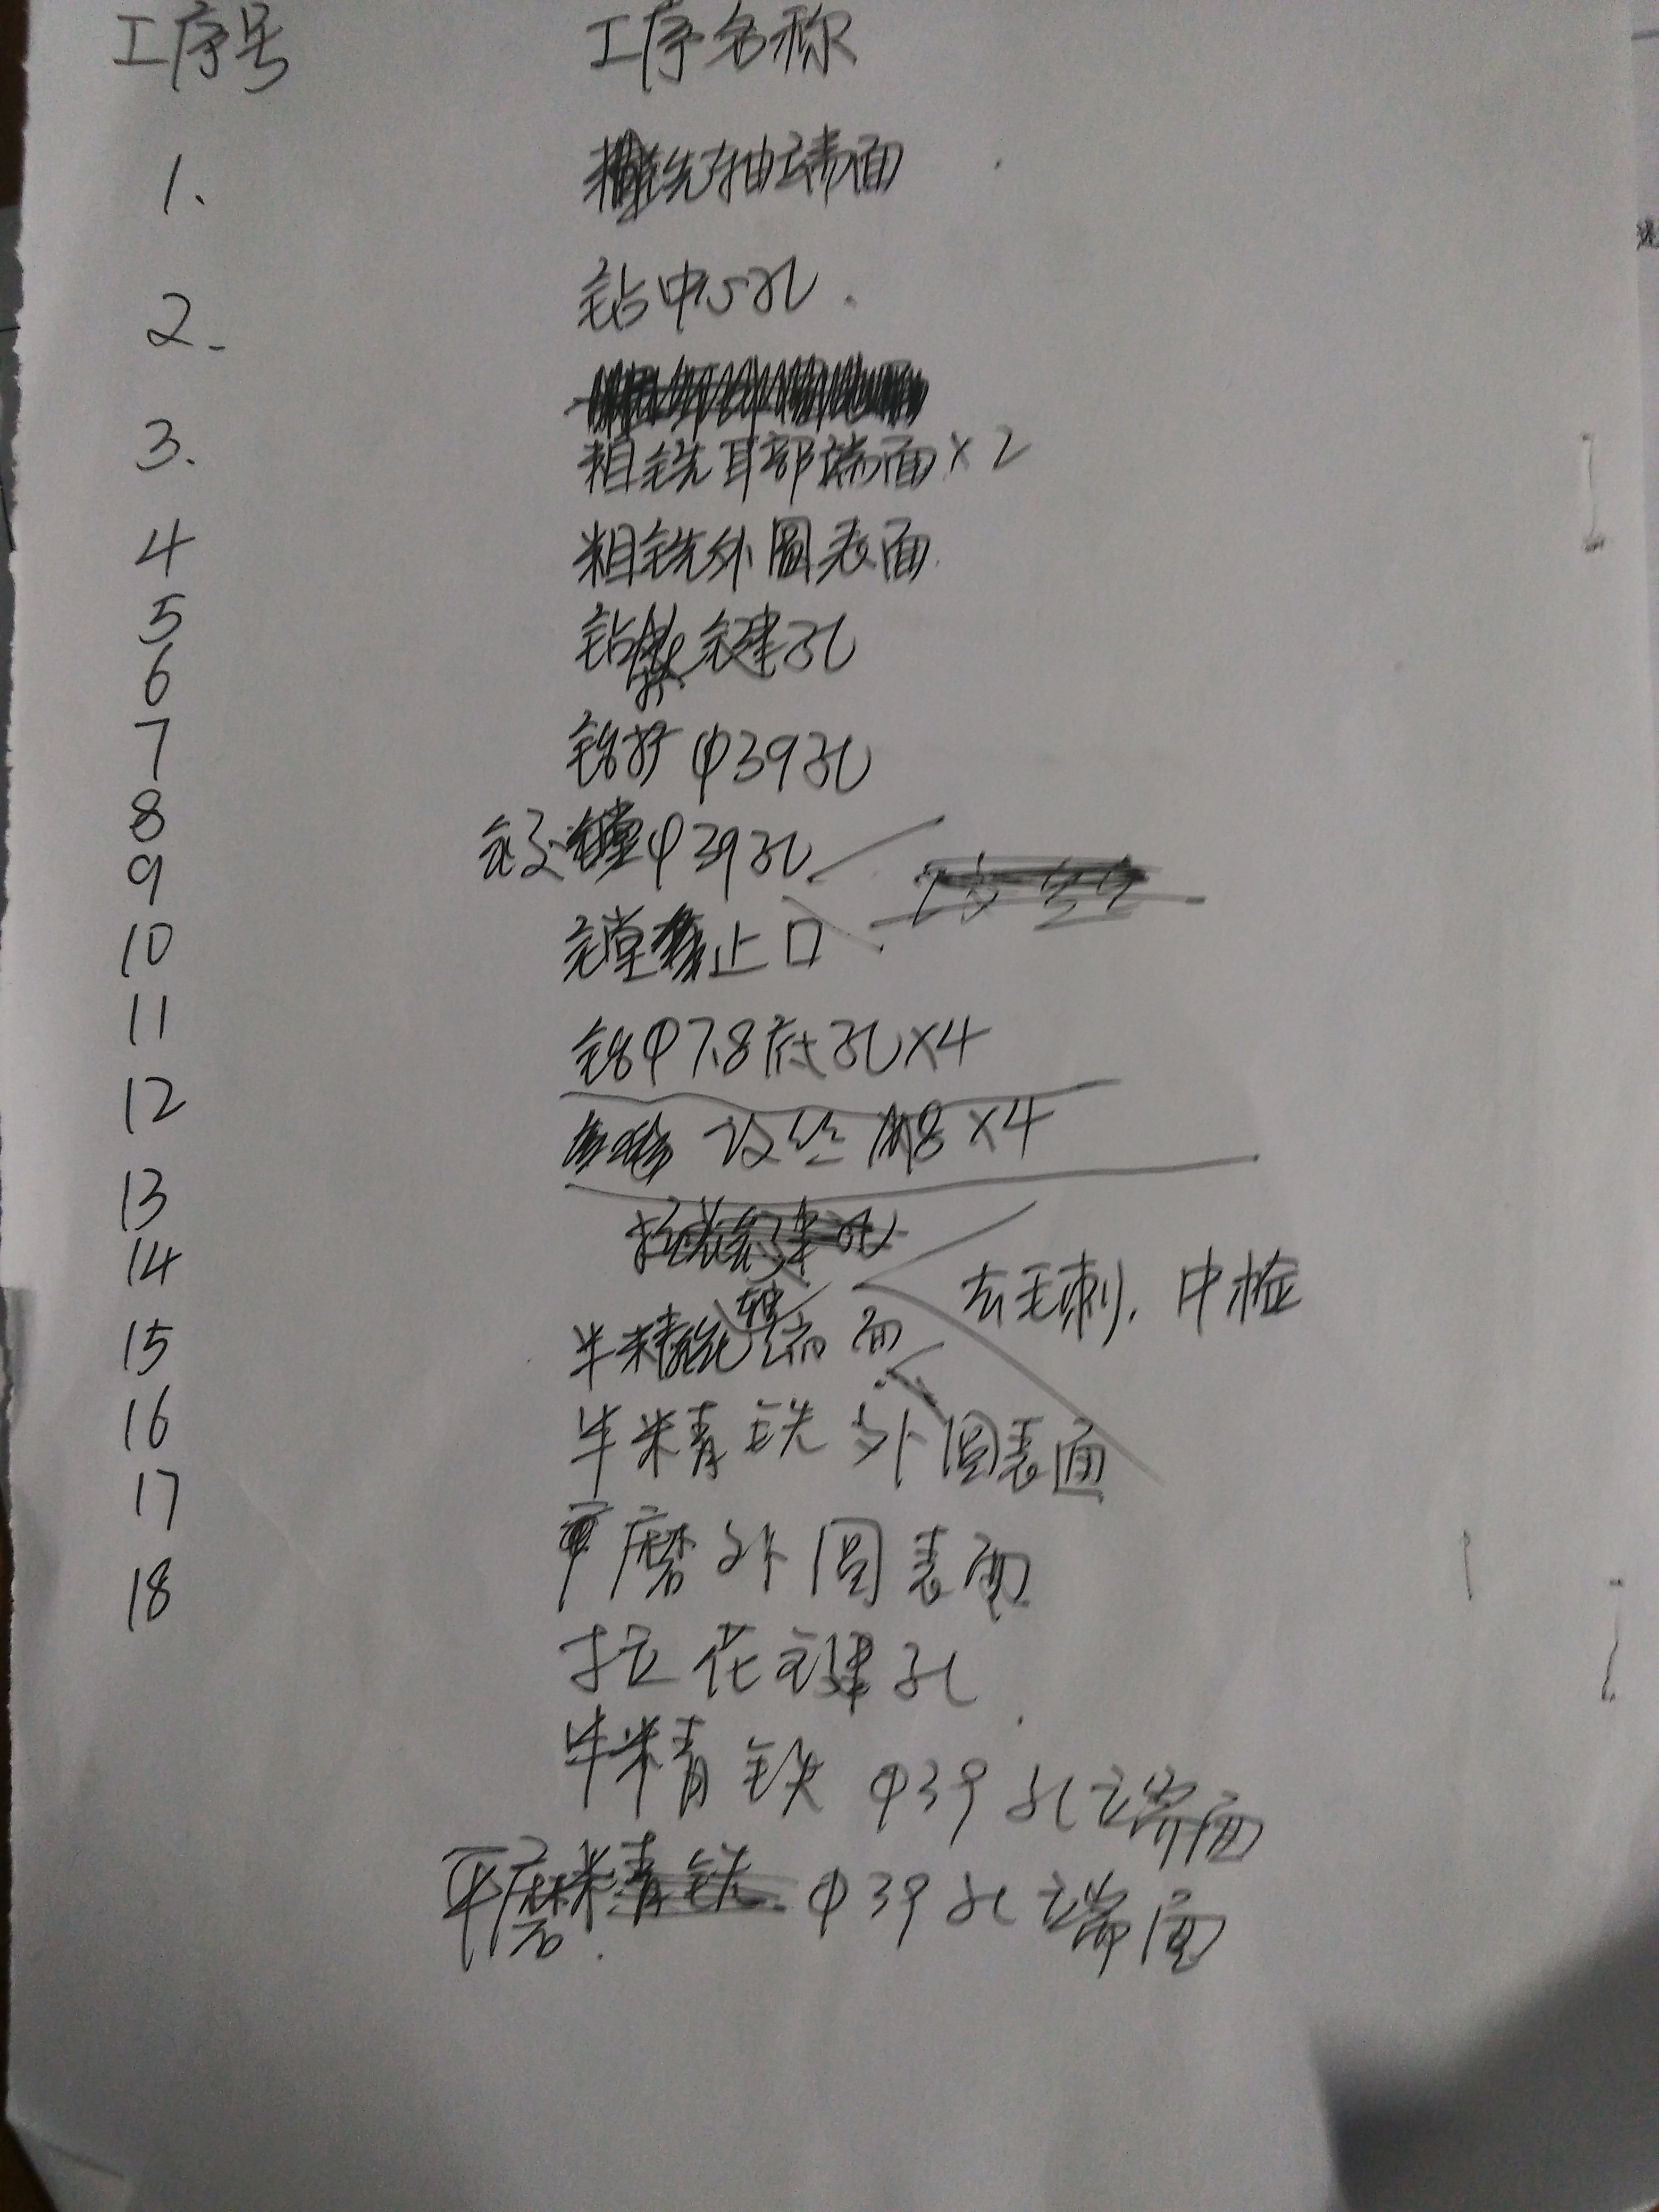 工序号 工序名称
1. 铣轴端面
2. 钻中心孔.
3. 粗铣耳部端面×2
4 粗铣外圆表面
5 钻 键孔
6
7 钻扩φ39孔
8 镗φ39孔
9
10 镗 止口
11 钻φ7.8底孔×4
12 攻丝M8×4
13
14 去毛刺.中检
15 半精铣 端面
16 半精铣外圆表面
17 磨外圆表面
18
拉花键孔
半精铣φ39孔端面
平磨 φ39孔端面